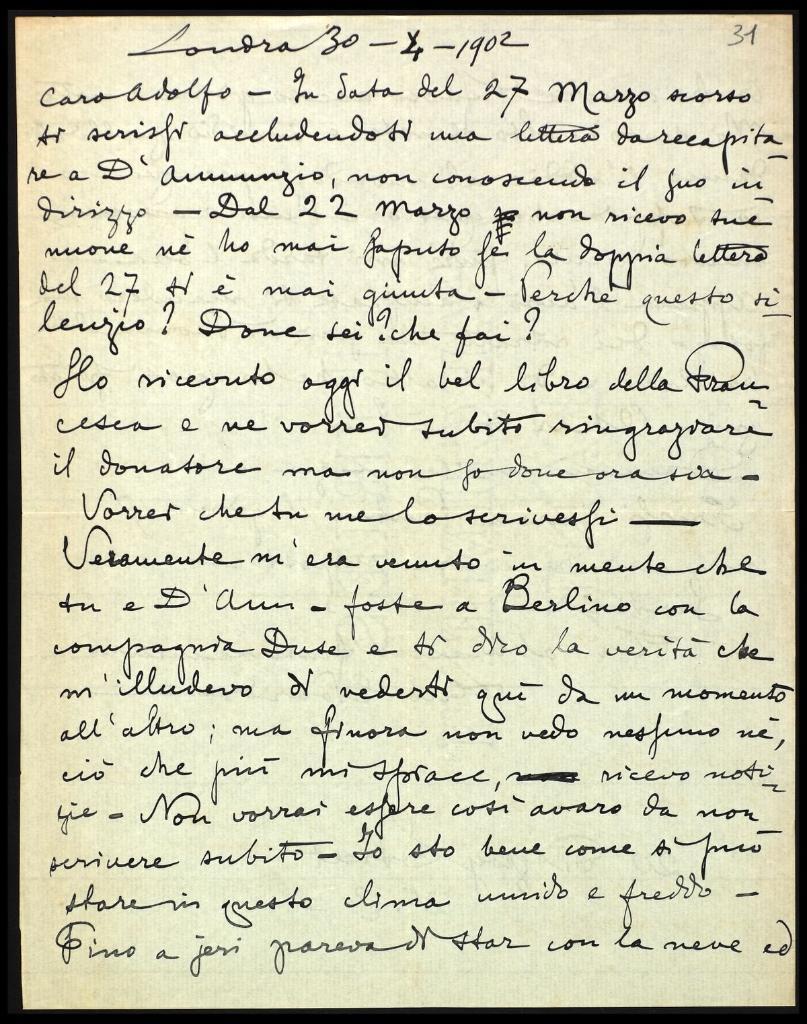 Londra 30-4-1902
31
Caro Adolfo - In data del 27 Marzo scorso
ti scrissi accludendoti una lettera da recapita
re a D'Annunzio, non conoscendo il suo in
dirizzo - Dal 22 Marzo non ricevo tue
nuove nè ho mai saputo se la doppia lettera
del 27 ti è mai giunta - Perchè questo si
lenzio? Dove sei? che fai?
Ho ricevuto oggi il bel libro della Fran
cesca e ne vorrei subito ringraziare
il donatore ma non so dove ora sia -
Vorrei che tu me lo scrivessi -
Veramente m'era venuto in mente che
tu e D'Ann - foste a Berlino con la
compagnia Duse e ti dirò la verità che
m'illudevo di vederti quì da un momento
all'altro; ma finora non vedo nessuno nè,
ciò che più mi spiace, ricevo noti
zie - Non vorrai essere così avaro da non
scrivere subito - Io sto bene come si può
stare in questo clima umido e freddo -
Fino a jeri pareva di star con la neve ed